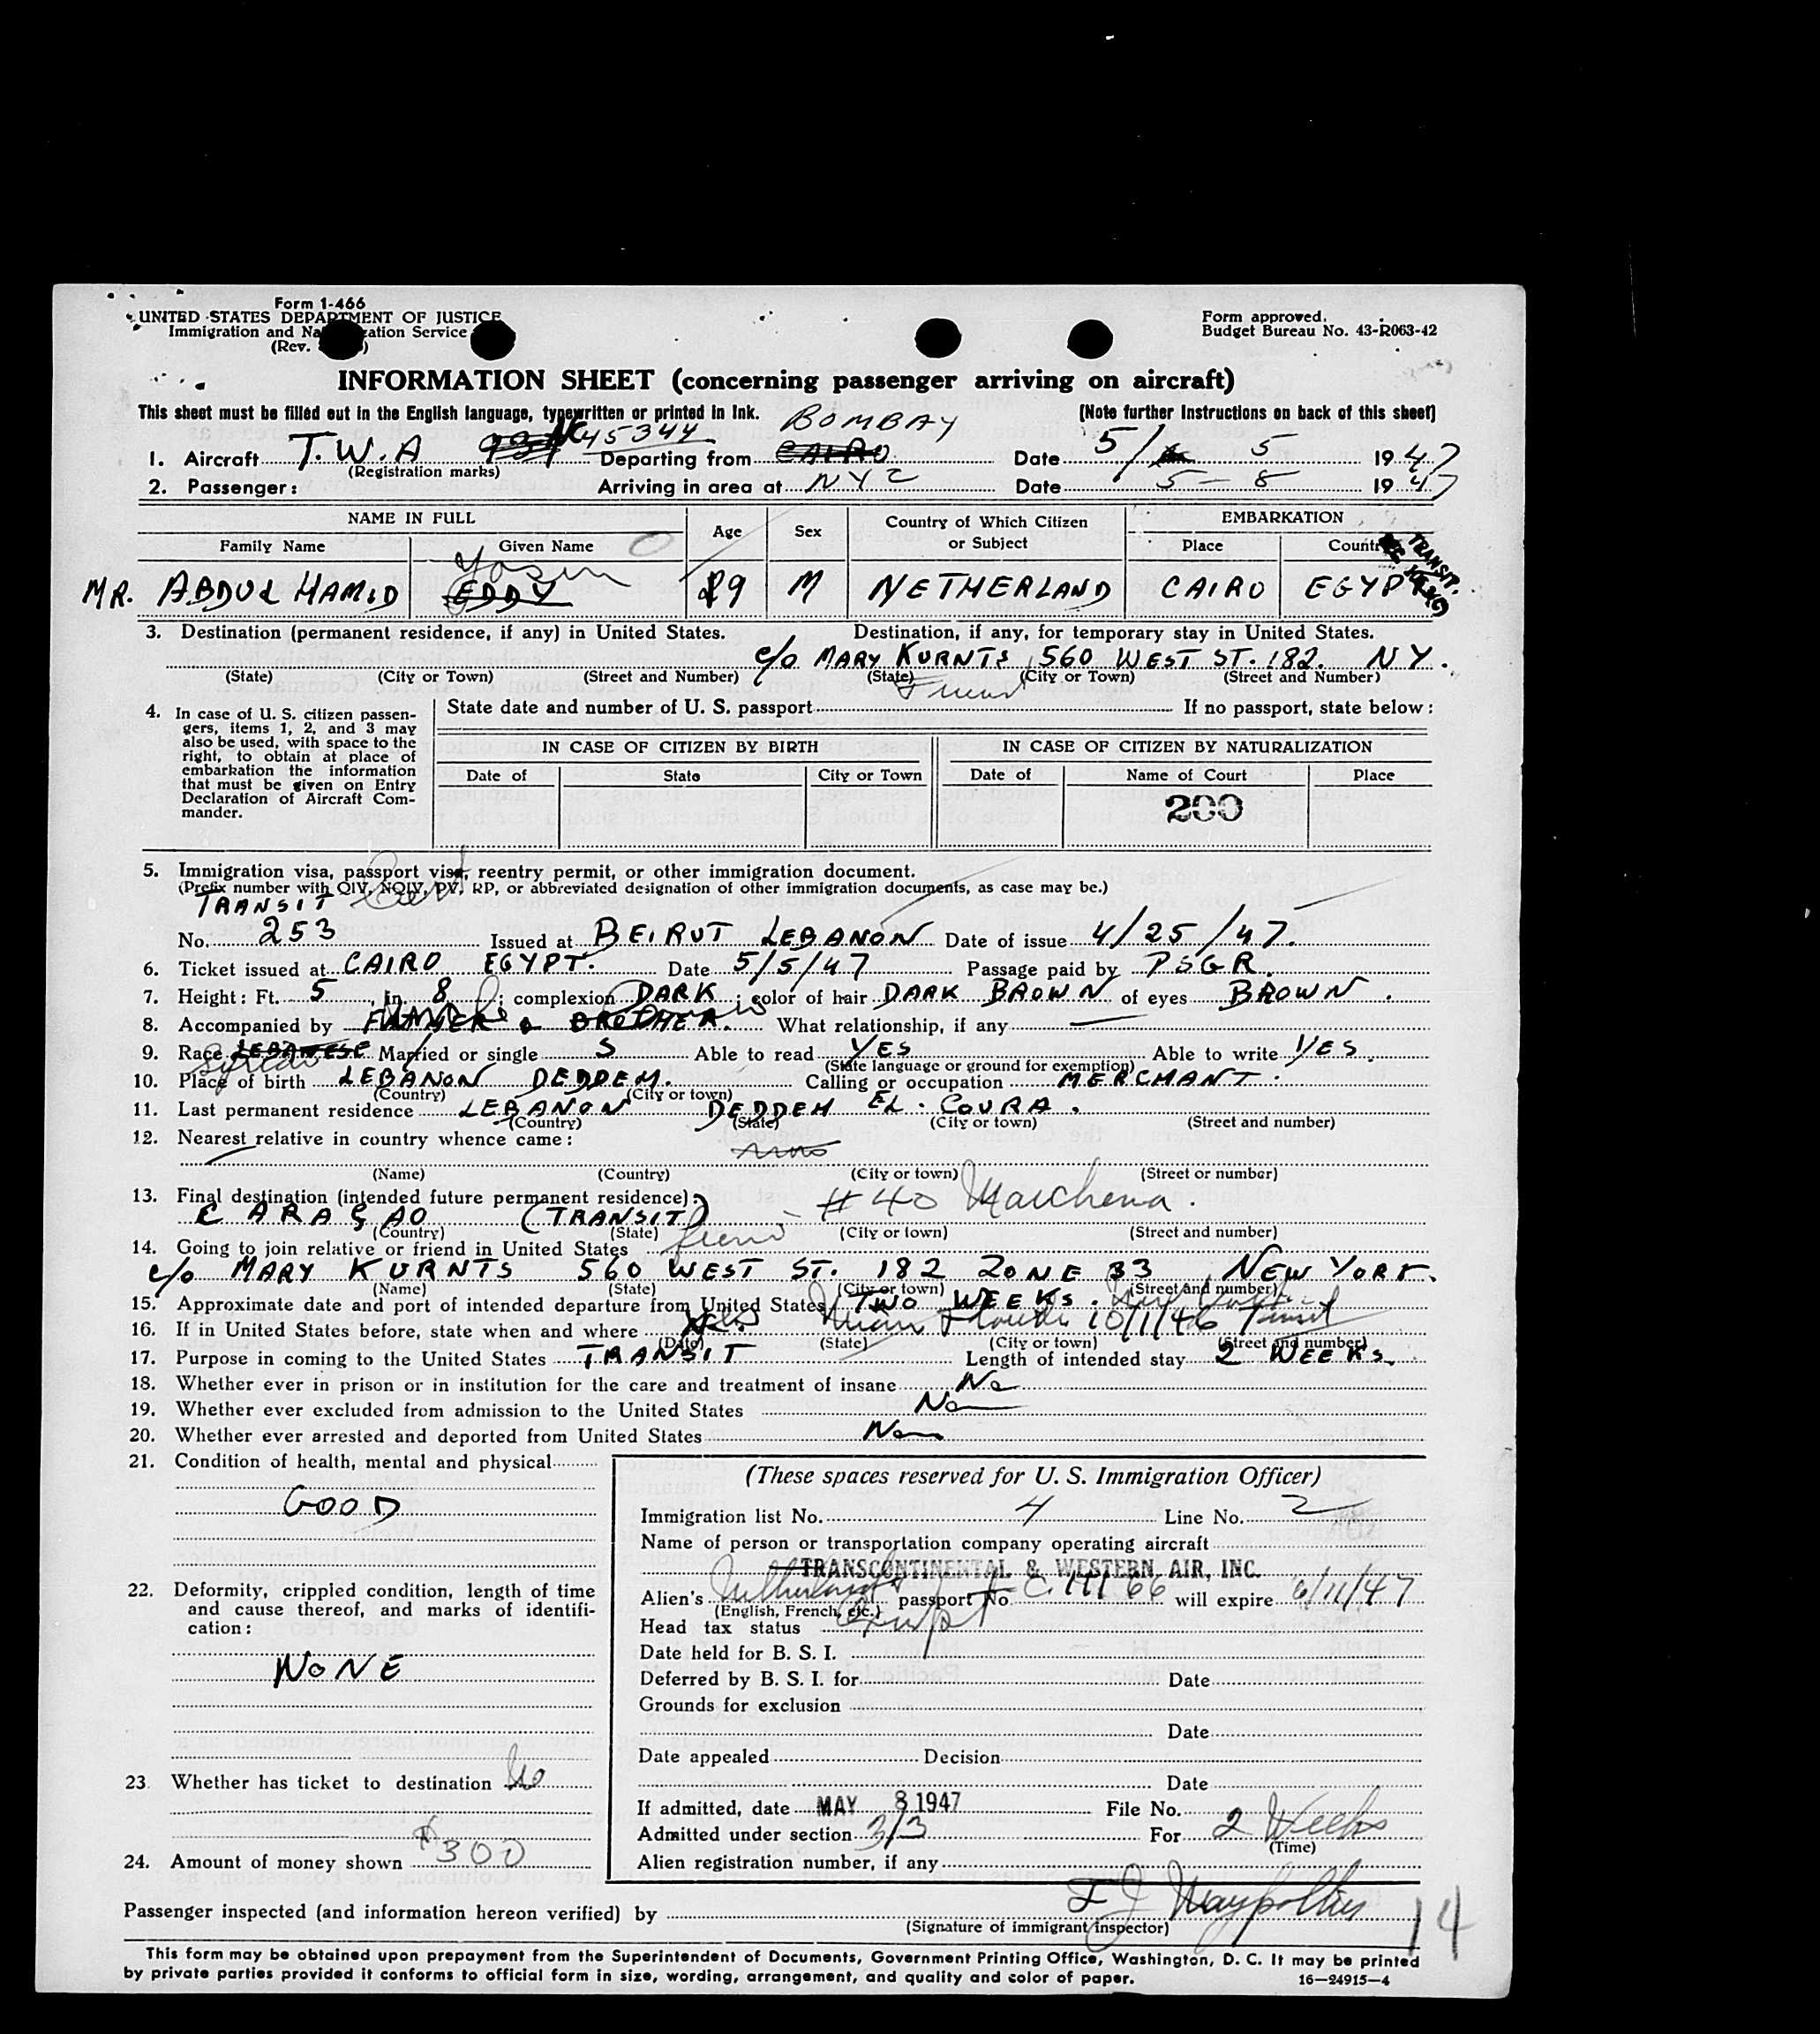 Form 1-466
UNITED STATES DEPARTMENT OF JUSTICE
Immigration and Na ation Service
(Rev. )
Form approved.
Budget Bureau No. 43-R063-42
INFORMATION SHEET (concerning passenger arriving on aircraft)
This sheet must be filled out in the English language, typewritten or printed in ink. (Note further instructions on back of this sheet)
BOMBAY
1. Aircraft T.W.A 931 NC 45344 Departing from CAIRO Date 5/ 5 1947
(Registration marks)
2. Passenger: Arriving in area at NYC Date 5-8 1947
NAME IN FULL Age Sex Country of Which Citizen or Subject EMBARKATION
Family Name Given Name Place Country
TRANSIT.
Yasin
MR. ABDUL HAMID EDDY 29 M NETHERLAND CAIRO EGYPT
3. Destination (permanent residence, if any) in United States. Destination, if any, for temporary stay in United States.
c/o MARY KURNTS, 560 WEST ST. 182. NY.
(State) (City or Town) (Street and Number) (State) (City or Town) (Street and Number)
Friend
4. In case of U. S. citizen passengers, items 1, 2, and 3 may also be used, with space to the right, to obtain at place of embarkation the information that must be given on Entry Declaration of Aircraft Commander.
State date and number of U. S. passport If no passport, state below:
IN CASE OF CITIZEN BY BIRTH IN CASE OF CITIZEN BY NATURALIZATION
Date of State City or Town Date of Name of Court Place
200
5. Immigration visa, passport visa, reentry permit, or other immigration document.
(Prefix number with QIV, NQIV, PV, RP, or abbreviated designation of other immigration documents, as case may be.)
TRANSIT Cert
No. 253 Issued at BEIRUT LEBANON Date of issue 4/25/47.
6. Ticket issued at CAIRO EGYPT. Date 5/5/47 Passage paid by PSGR.
7. Height: Ft. 5, in. 8; complexion DARK; color of hair DARK BROWN of eyes BROWN.
8. Accompanied by FATHER & BROTHER. What relationship, if any —
9. Race LEBANESE Married or single S Able to read YES Able to write YES.
Syrian
(State language or ground for exemption)
10. Place of birth LEBANON DEDDEH. Calling or occupation MERCHANT.
(Country) (City or town)
11. Last permanent residence LEBANON DEDDEH EL. COURA.
(Country) (State) (City or town) (Street and number)
12. Nearest relative in country whence came:
(Name) (Country) (City or town) (Street or number)
13. Final destination (intended future permanent residence): #40 Marchena.
CARAÇAO (TRANSIT)
(Country) (State) (City or town) (Street and number)
14. Going to join relative or friend in United States friend
c/o MARY KURNTS 560 WEST ST. 182 ZONE 33, NEW YORK.
(Name) (State) (City or town) (Street and number)
15. Approximate date and port of intended departure from United States TWO WEEKS.
16. If in United States before, state when and where Yes. Miami Florida 10/1/46 Transit
(Date) (State) (City or town) (Street and number)
17. Purpose in coming to the United States TRANSIT Length of intended stay 2 WEEKS.
18. Whether ever in prison or in institution for the care and treatment of insane No
19. Whether ever excluded from admission to the United States No
20. Whether ever arrested and deported from United States No
21. Condition of health, mental and physical
GOOD
22. Deformity, crippled condition, length of time and cause thereof, and marks of identification:
NONE
23. Whether has ticket to destination No
24. Amount of money shown $300
(These spaces reserved for U. S. Immigration Officer)
Immigration list No. 4 Line No. 2
Name of person or transportation company operating aircraft
TRANSCONTINENTAL & WESTERN AIR, INC.
Alien's Netherlands passport No. will expire 6/11/47
(English, French, etc.)
Head tax status Exempt
Date held for B. S. I.
Deferred by B. S. I. for Date
Grounds for exclusion
Date
Date appealed Decision
Date
If admitted, date MAY 8 1947 File No.
Admitted under section 3/3 For 2 Weeks
(Time)
Alien registration number, if any
Passenger inspected (and information hereon verified) by
(Signature of immigrant inspector)
14
This form may be obtained upon prepayment from the Superintendent of Documents, Government Printing Office, Washington, D. C. It may be printed
by private parties provided it conforms to official form in size, wording, arrangement, and quality and color of paper. 16—24915-4